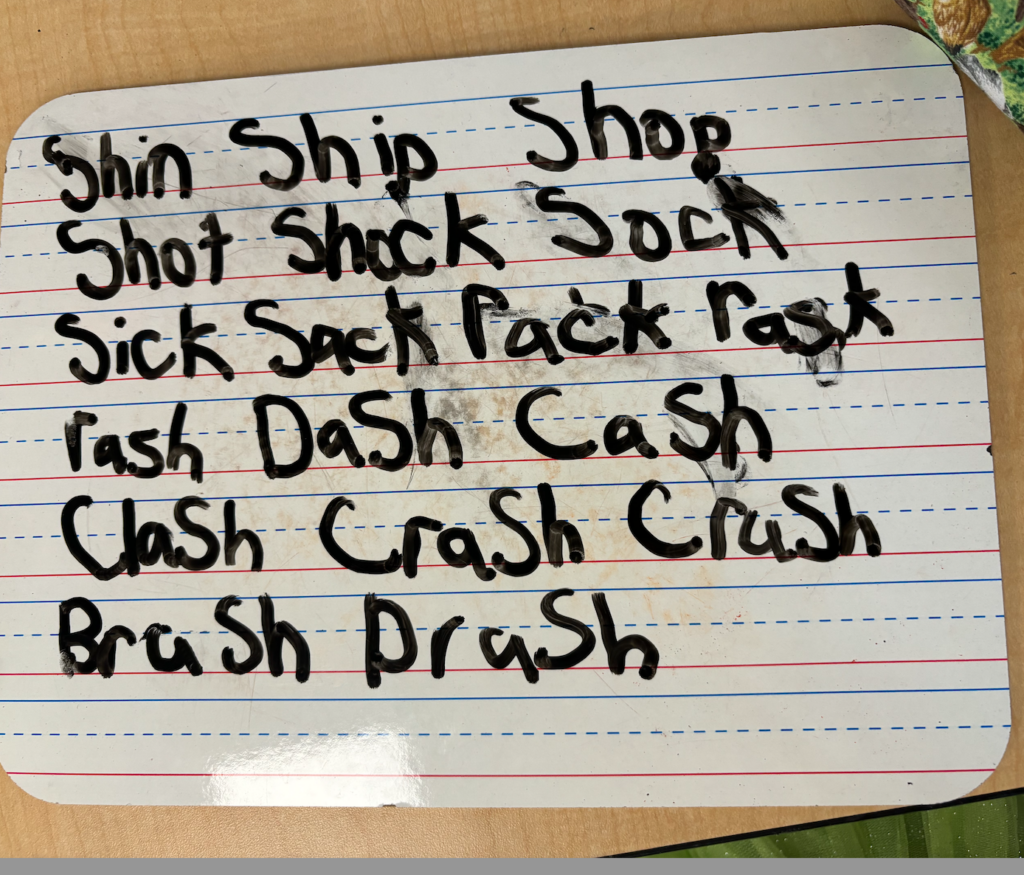 Shin Ship Shop
Shot Shock Sock
Sick Sack rack rask
rash DaSh CaSh
ClaSh CraSh CruSh
BruSh DraSh